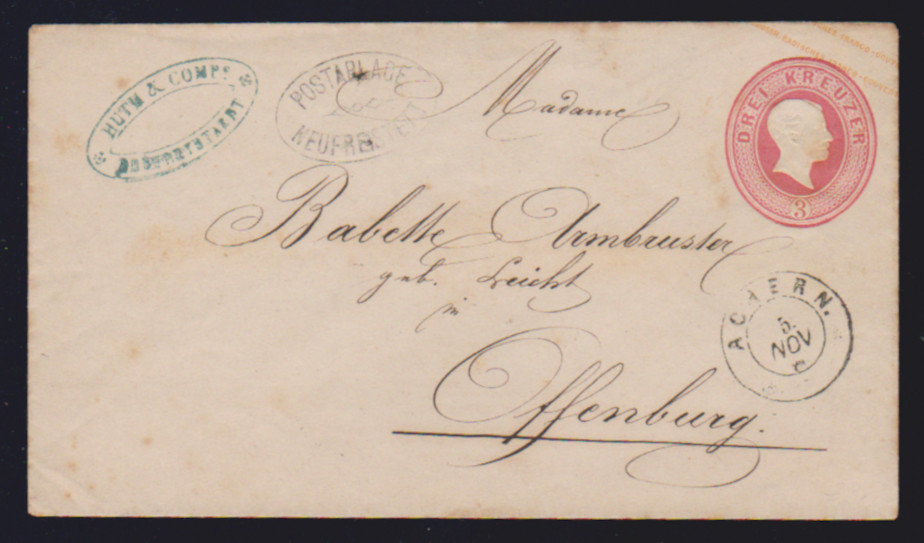 HUTH & COMP.
POSTABLAGE
NEUFREISTETT
Madame
DREI KREUZER
3
Babette Armbruster
geb. Leicht
in
ACHERN.
5.
NOV
Offenburg.